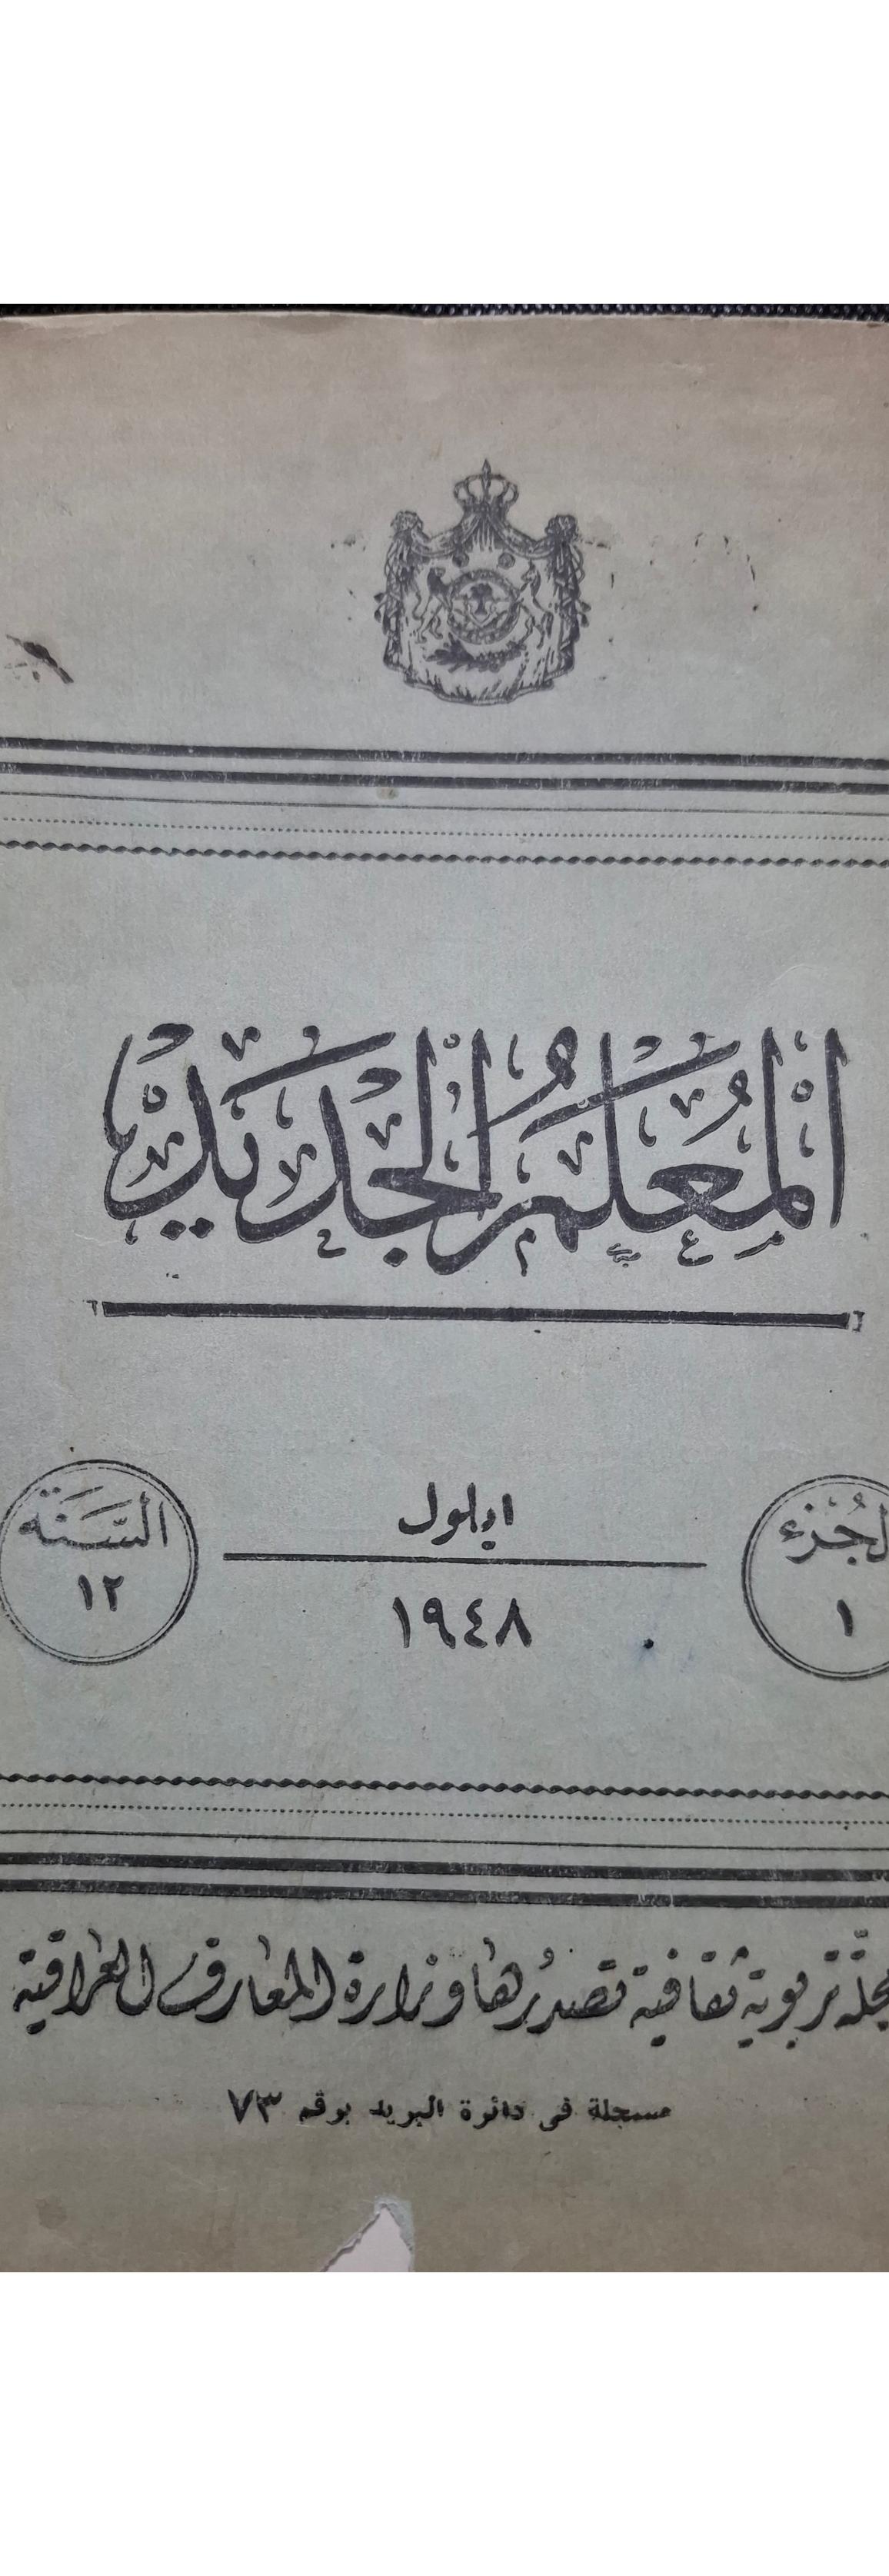 المعلم الجديد
الجزء
١
ايلول
١٩٤٨
السنة
١٢
مجلة تربوية ثقافية تصدرها وزارة المعارف العراقية
مسجلة فى دائرة البريد برقم ٧٣